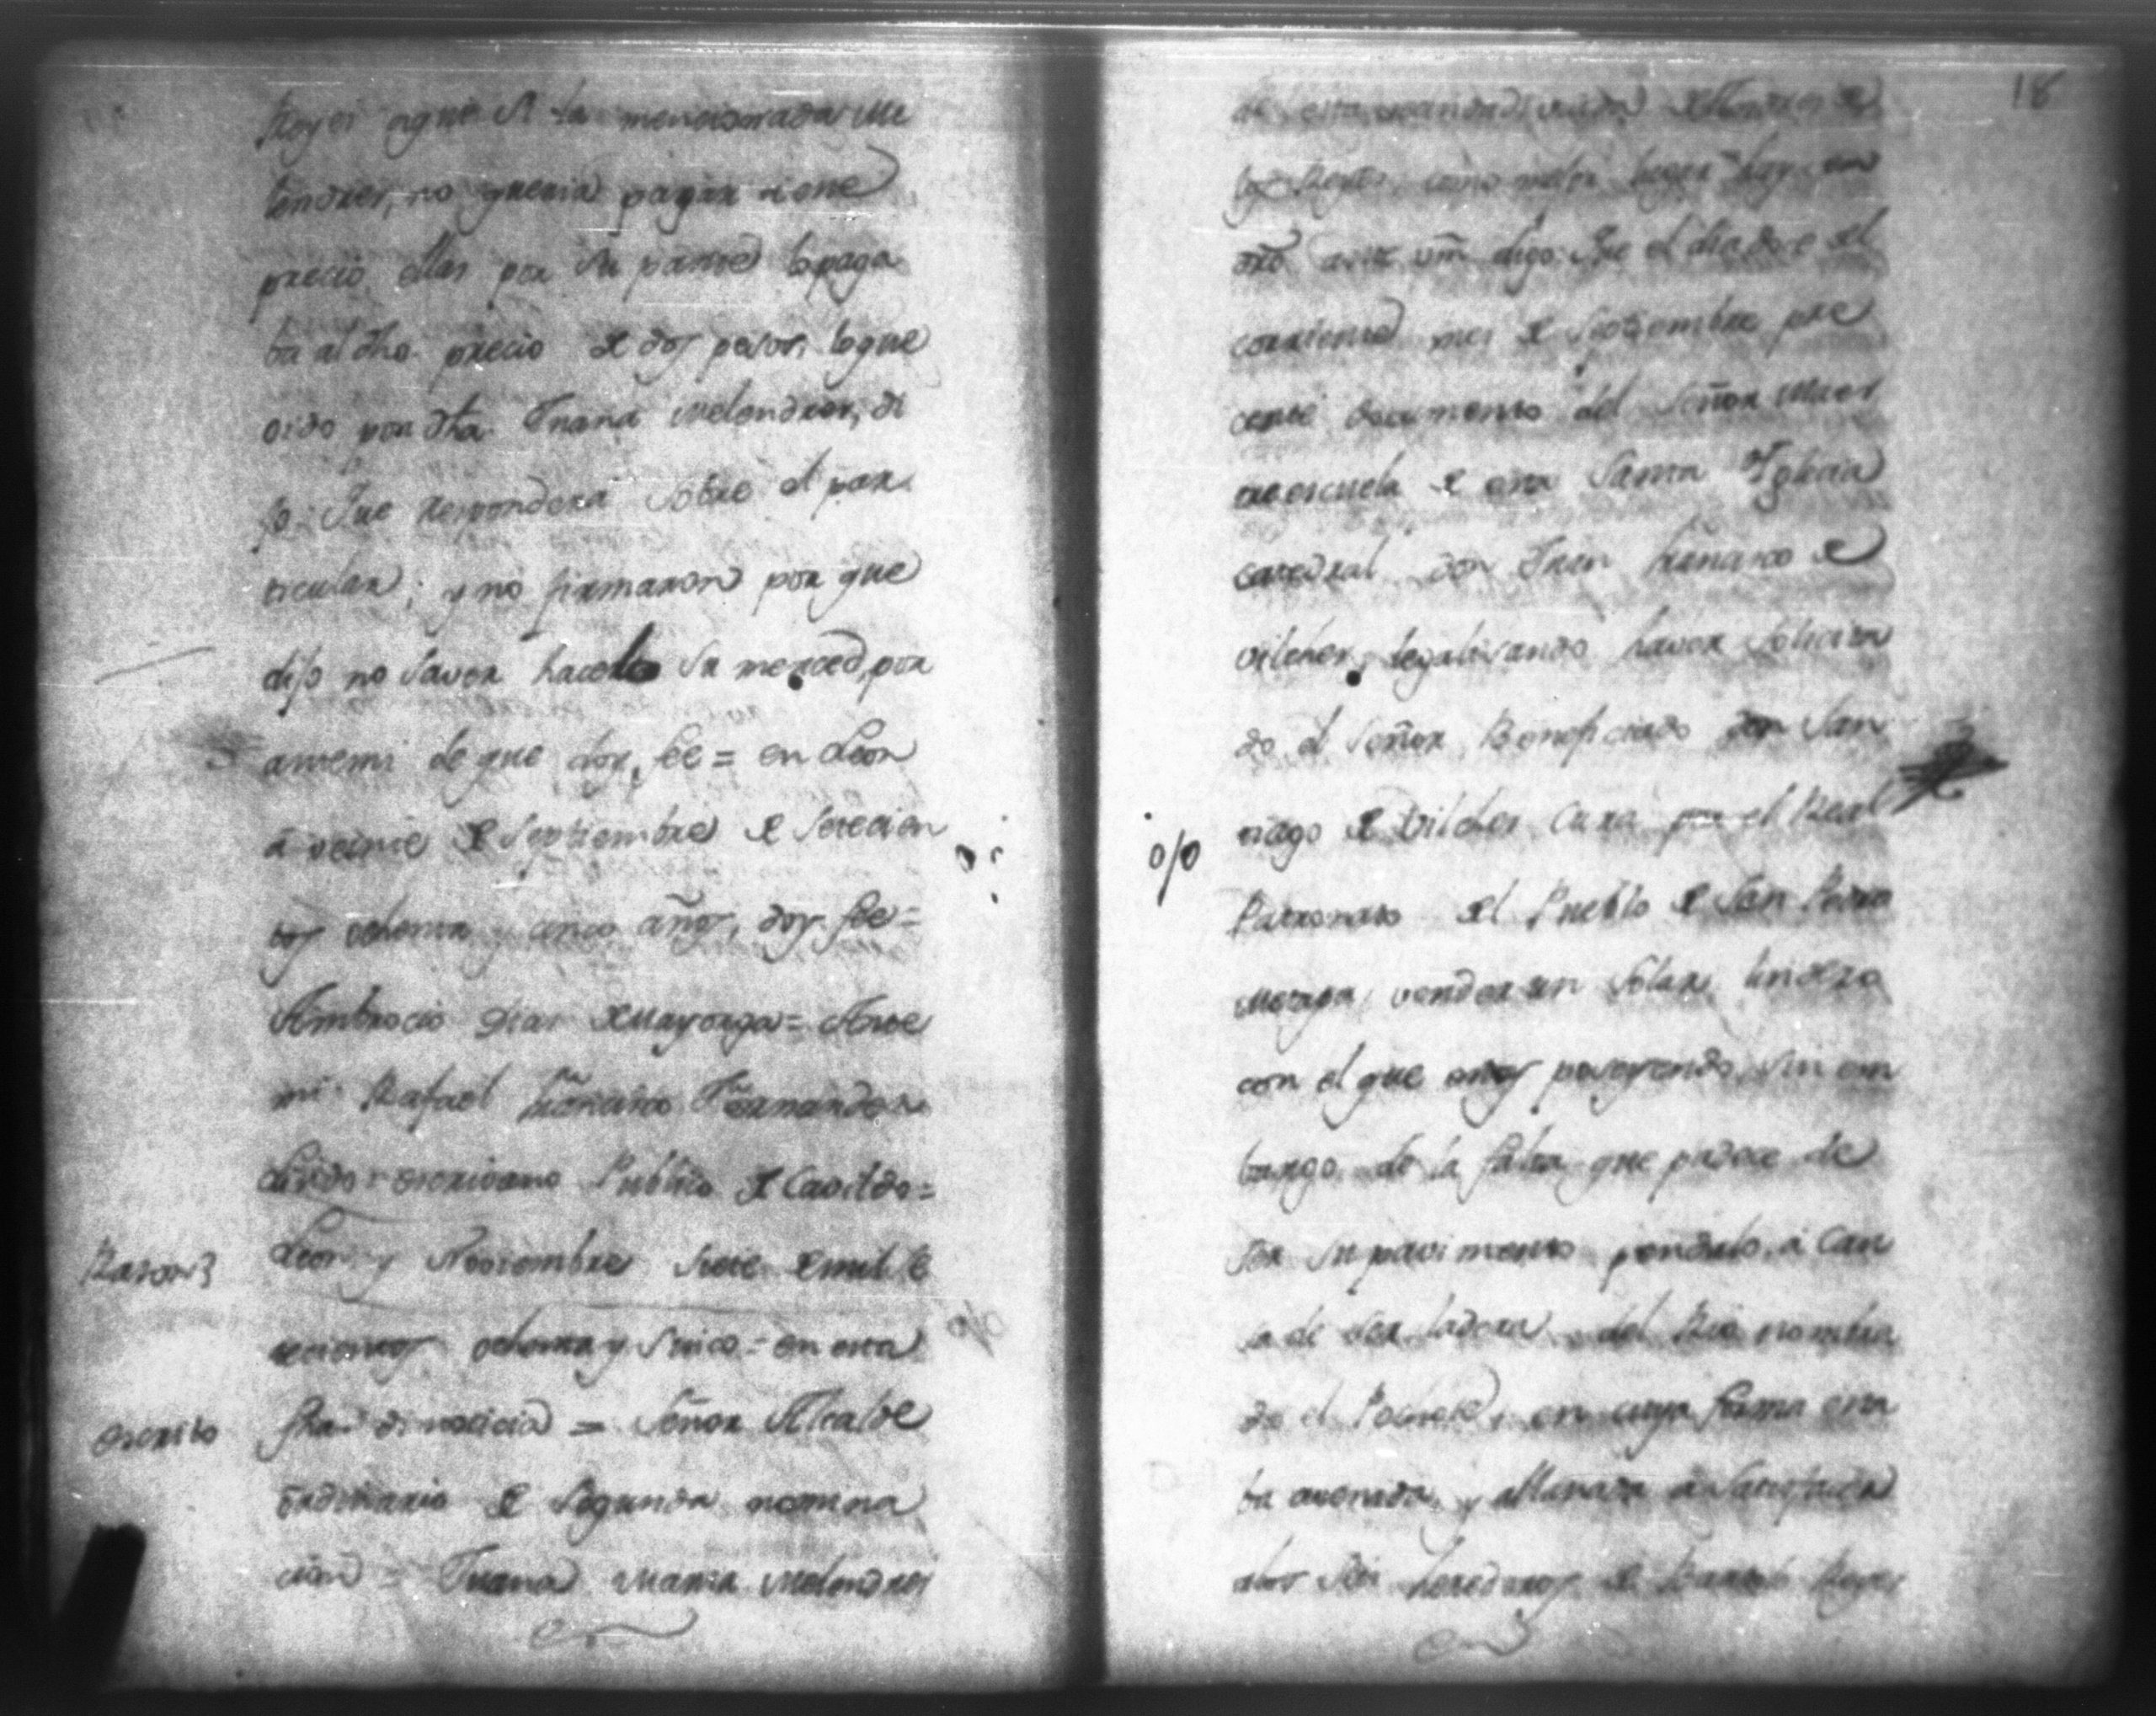 Reyes aque si la mencionada Me
lendres, no queria pagar a ese
precio ellas por su parte lo paga
ba al dho. precio de dos pesos, lo que
oido por dha. Juana Melendres, di
jo: Que respondera sobre el par
ticular; y no firmaron por que
dijo no saver hacerlo su merced, por
antemi de que doy fee = en Leon
á veinte de Septiembre de setecien
tos ochenta y cinco años, doy fee =
Ambrocio Dias de Mayorga = Ante
mi Rafael Fernandes
escrivano Publico de Cavildo =
Razon
Leon y Noviembre siete de mil se
tecientos ochenta y sinco = en esta
escrito
fha. di noticia = Señor Alcalde
ordinario de segunda nomina
cion = Juana Maria Melendres
18
de esta vecindad viuda
los Reyes, como mejor lugar hay en
dro. ante vm. digo: Que el dia doce del
corriente mes de Septiembre pre
cente documento del Señor Maes
tre escuela de esta Santa Yglecia
catedral don Juan de
Vilches, legalisando haver solicita
do el Señor Beneficiado don San
tiago de Vilches Cura por el Real
Patronato del Pueblo de San Pedro
Metapa, vender un solar lindero
con el que estoy poseyendo, sin em
bargo de la falta que padece de
ser su pavimento pendulo, á cau
sa de ser ladera del Rio nombra
do el Pochote, en cuya forma esta
ba y allanada
alos herederos de Reyes
o/o